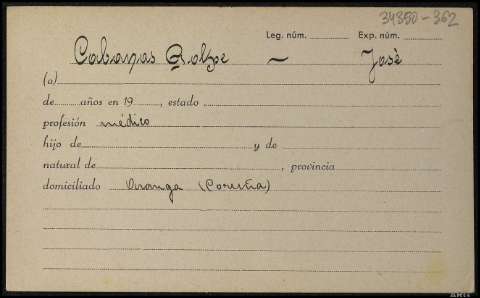 34350-362
Leg. núm. Exp. núm.
Cabanas Golpe — José
(a)
de años en 19 , estado
profesión médico
hijo de y de
natural de , provincia
domiciliado Oranga (Coruña)